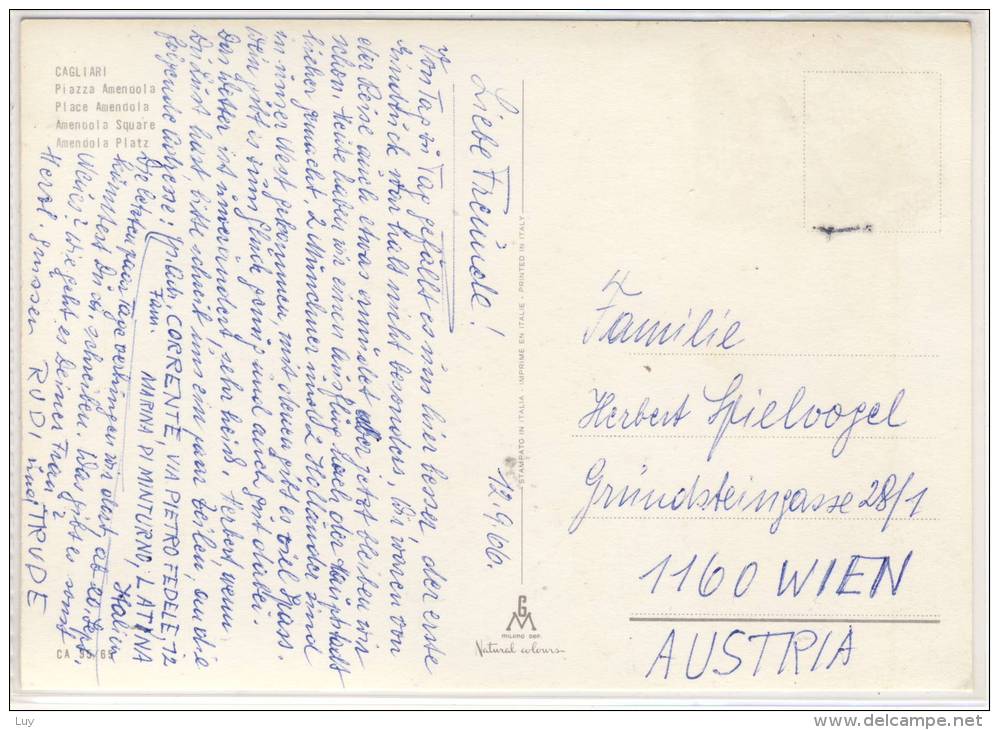 CAGLIARI
Piazza Amendola
Place Amendola
Amendola Square
Amendola Platz
12.9.66.
Liebe Freunde!
Von Tag zu Tag gefällt es mir hier besser, der erste
Eindruck war halt nicht besonders. Wir waren von
der Reise auch etwas ermüdet aber jetzt bleiben wir
schon. Heute haben wir einen Ausflug nach der Hauptstadt
gemacht, 2 Münchner und 2 Holländer sind
in unser Nest gekommen, mit denen gibt es viel Spass.
Wein gibt es zum Glück genug und auch gut dabei.
Das Wetter ist unverändert, sehr heiß. Herbert, wenn
Du Lust hast, bitte schreib uns ein paar Zeilen, an die
folgende Adresse: CORRENTE, VIA PIETRO FEDELE, 72
Fam. MARINA DI MINTURNO, LATINA
Italien
Die letzten paar Tage verbringen wir dort, ab 20. Sept.
könntest Du schreiben. Was gibt es sonst
Neues? Wie geht es Deiner Frau?
Herzl. Grüssen RUDI und TRUDE
CA 95/65
STAMPATO IN ITALIA - IMPRIME EN ITALIE - PRINTED IN ITALY
GM
MILANO DEP.
Natural colours
Familie
Herbert Spielvogel
Gründsteingasse 28/1
1160 WIEN
AUSTRIA
Luy
www.delcampe.net